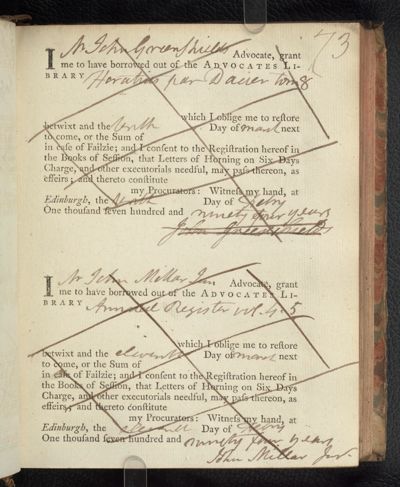 73
I Mr John Greenshields Advocate, grant
me to have borrowed out of the ADVOCATES LI-
BRARY Horatius par Dacier tom 8
which I oblige me to reſtore
betwixt and the tenth Day of March next
to come, or the Sum of
in caſe of Failzie; and I conſent to the Regiſtration hereof in
the Books of Seſſion, that Letters of Horning on Six Days
Charge, and other executorials needful, may paſs thereon, as
effeirs; and thereto conſtitute
my Procurators: Witneſs my hand, at
Edinburgh, the tenth Day of Febry
One thouſand ſeven hundred and ninety four years
John Greenshields
I Mr John Millar Jun. Advocate, grant
me to have borrowed out of the ADVOCATES LI-
BRARY Annual Register vol. 4. 5
which I oblige me to reſtore
betwixt and the eleventh Day of March next
to come, or the Sum of
in caſe of Failzie; and I conſent to the Regiſtration hereof in
the Books of Seſſion, that Letters of Horning on Six Days
Charge, and other executorials needful, may paſs thereon, as
effeirs; and thereto conſtitute
my Procurators: Witneſs my hand, at
Edinburgh, the eleventh Day of Febry
One thouſand ſeven hundred and ninety four years
John Millar Junr.